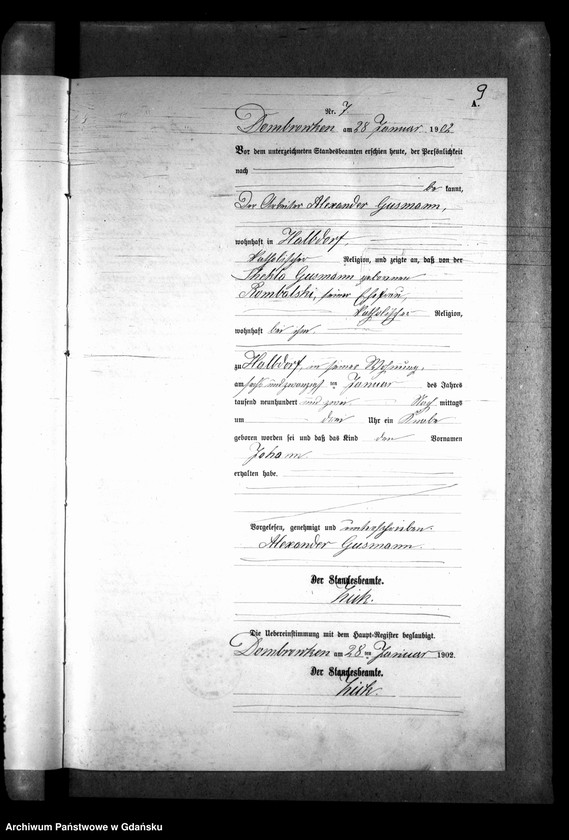 9
A.
Nr. 7
Dombrowken am 28 Januar 1902
Vor dem unterzeichneten Standesbeamten erschien heute, der Persönlichkeit
nach
be kannt,
Der Arbeiter Alexander Gusmann,
wohnhaft in Halbdorf,
katholischer Religion, und zeigte an, daß von der
Thekla Gusmann geborenen
Rombalski, seiner Ehefrau,
katholischer Religion,
wohnhaft bei ihm
zu Halbdorf, in seiner Wohnung,
am sechs und zwanzigsten Januar des Jahres
tausend neunhundert und zwei Nach mittags
um drei Uhr ein Knabe
geboren worden sei und daß das Kind den Vornamen
Johann
erhalten habe.
Vorgelesen, genehmigt und unterschrieben.
Alexander Gusmann.
Der Standesbeamte.
Die Uebereinstimmung mit dem Haupt-Register beglaubigt.
Dombrowken am 28 ten Januar 1902.
Der Standesbeamte.
Archiwum Państwowe w Gdańsku